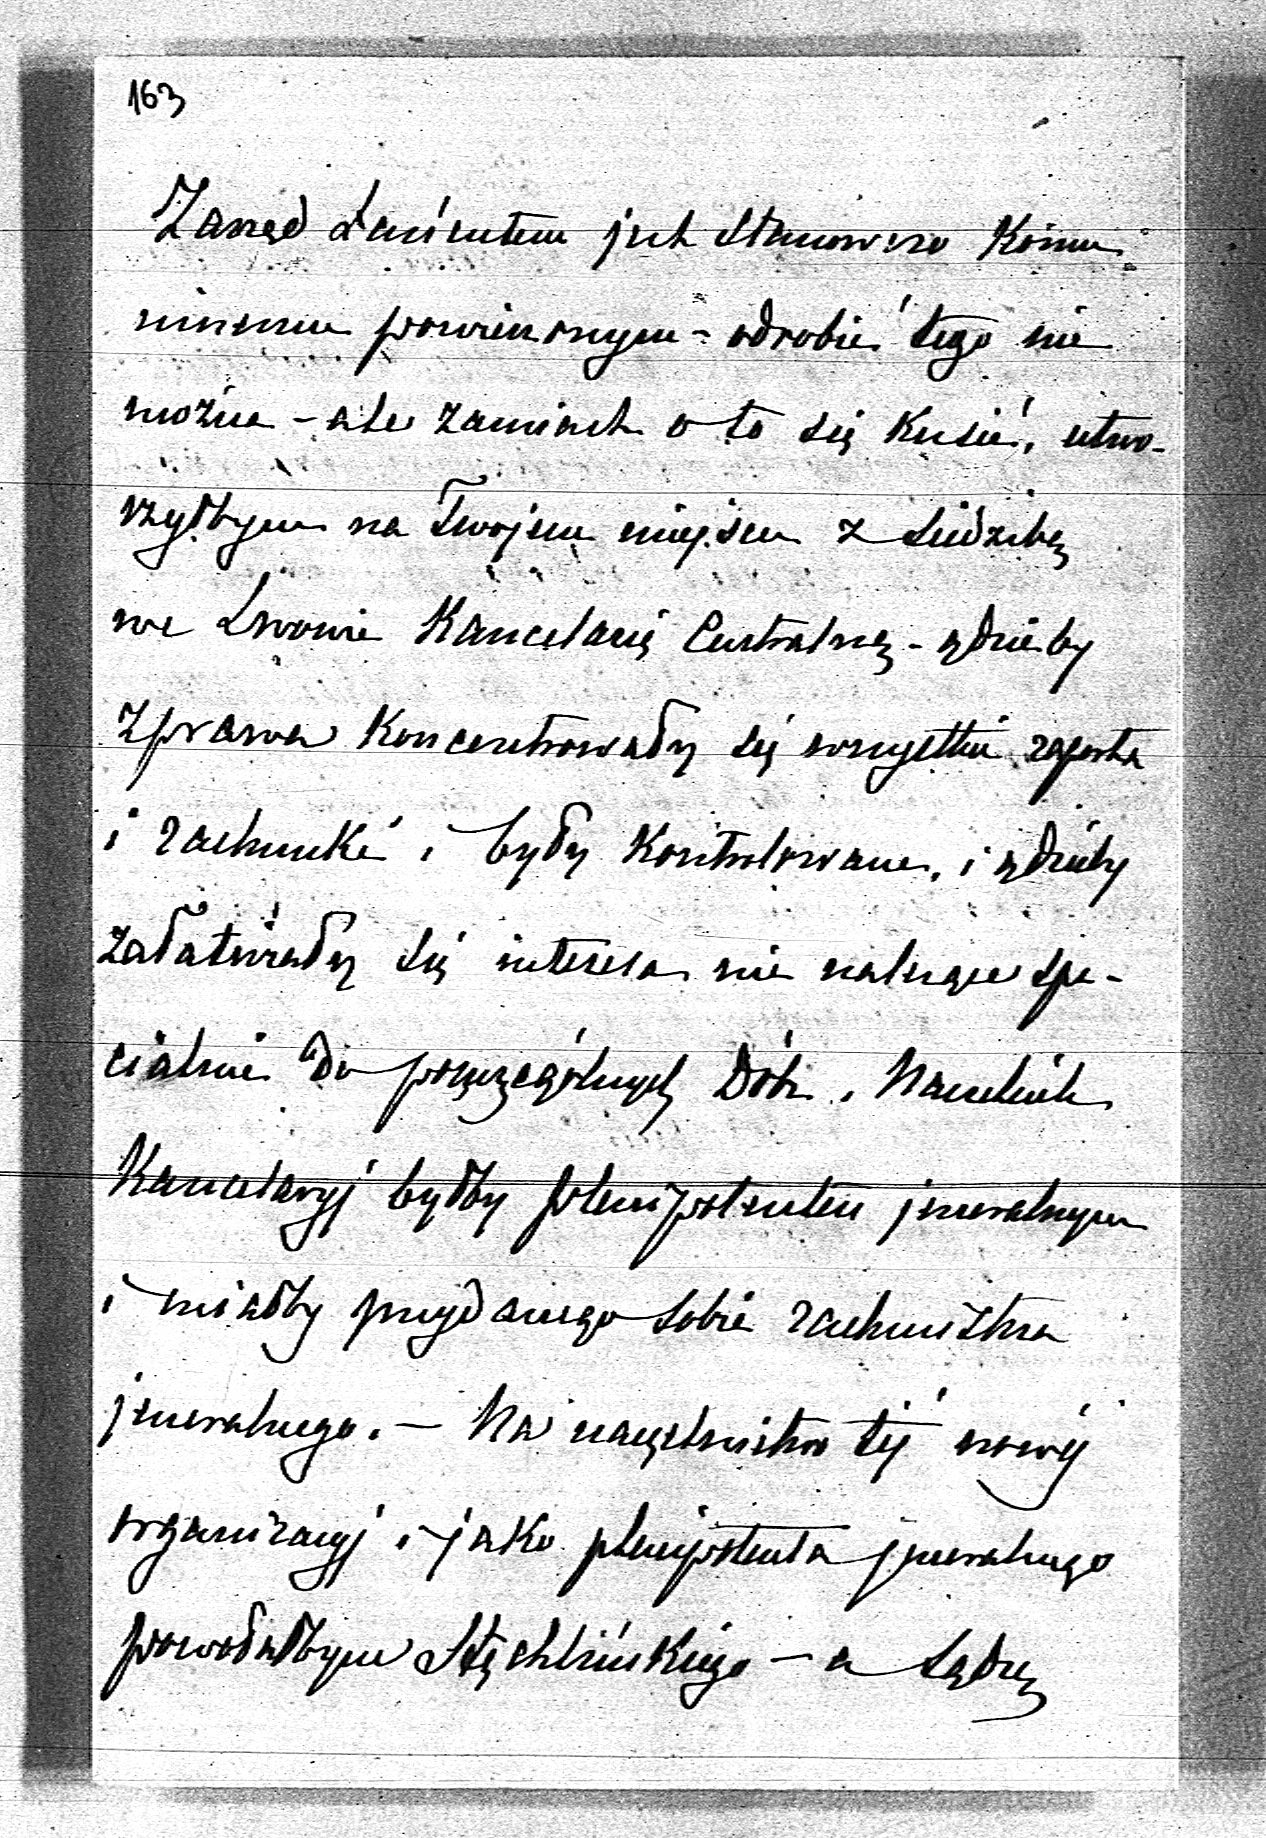 163
Zarząd Łańcutem jest stanowczo komu
innemu powierzonym - odrobić tego nie
można - ale zamiast o to się kusić, utwo-
rzyłbym na Twojem miejscu z siedzibą
we Lwowie Kancelarię Centralną - gdzieby
zprawa koncentrowały się wszystkie raporta
i rachunki i były kontrolowane, i gdzieby
załatwiały się interesa nie należące spe-
cialnie do poszczególnych Dóbr. Naczelnik
Kancelaryj byłby plenipotentem jneralnym
i miałby przydanego sobie rachmistrza
jeneralnego. - Na naczelnictwo téj nowéj
organizacyj i jako plenipotenta jneralnego
powołałbym Stęchlińskiego - a sądzę